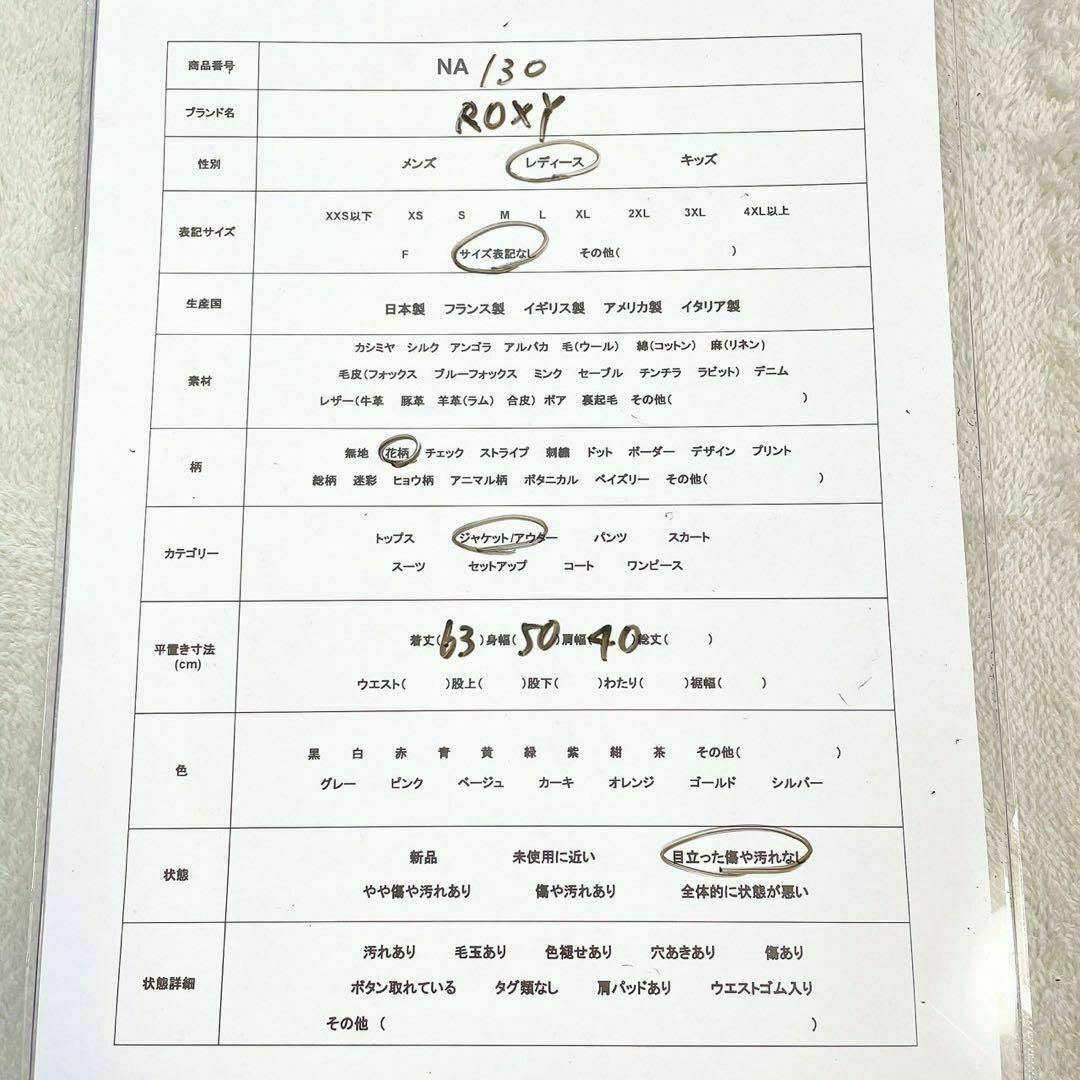 商品番号 NA 130
ブランド名 ROXY
性別 メンズ レディース キッズ
XXS以下 XS S M L XL 2XL 3XL 4XL以上
表記サイズ
F サイズ表記なし その他( )
生産国 日本製 フランス製 イギリス製 アメリカ製 イタリア製
カシミヤ シルク アンゴラ アルパカ 毛(ウール) 綿(コットン) 麻(リネン)
素材 毛皮(フォックス ブルーフォックス ミンク セーブル チンチラ ラビット) デニム
レザー(牛革 豚革 羊革(ラム) 合皮) ボア 裏起毛 その他( )
無地 花柄 チェック ストライプ 刺繍 ドット ボーダー デザイン プリント
柄
総柄 迷彩 ヒョウ柄 アニマル柄 ボタニカル ペイズリー その他( )
トップス ジャケット/アウター パンツ スカート
カテゴリー
スーツ セットアップ コート ワンピース
着丈(63)身幅(50)肩幅(40)総丈( )
平置き寸法
(cm)
ウエスト( )股上( )股下( )わたり( )裾幅( )
黒 白 赤 青 黄 緑 紫 紺 茶 その他( )
色
グレー ピンク ベージュ カーキ オレンジ ゴールド シルバー
新品 未使用に近い 目立った傷や汚れなし
状態
やや傷や汚れあり 傷や汚れあり 全体的に状態が悪い
汚れあり 毛玉あり 色褪せあり 穴あきあり 傷あり
状態詳細 ボタン取れている タグ類なし 肩パッドあり ウエストゴム入り
その他 ( )